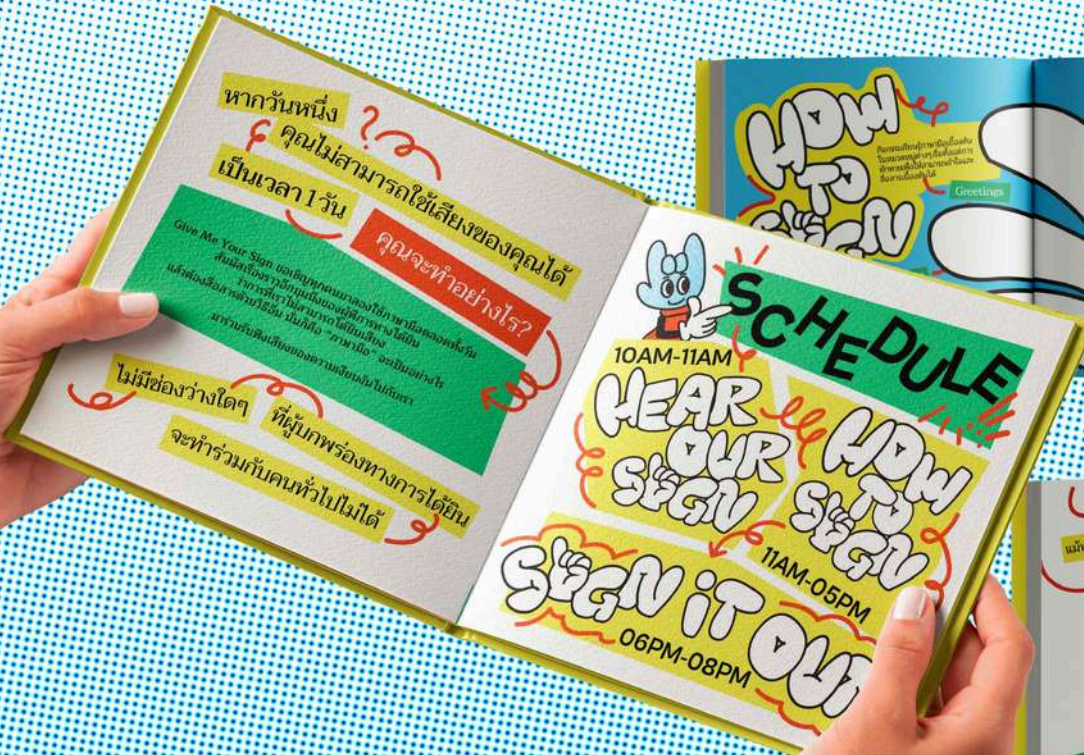 หากวันหนึ่ง
คุณไม่สามารถใช้เสียงของคุณได้
เป็นเวลา 1 วัน
คุณจะทำอย่างไร?
Give Me Your Sign ขอเชิญทุกคนมาลองใช้ภาษามือตลอดทั้งวัน
สัมผัสเรื่องราวอีกมุมนึงของผู้พิการทางได้ยิน
ว่าการที่เราไม่สามารถได้ยินเสียง
แล้วต้องสื่อสารด้วยวิธีอื่น นั่นก็คือ "ภาษามือ" จะเป็นอย่างไร
มาร่วมรับฟังเสียงของความเงียบงันไปกับเรา
ไม่มีช่องว่างใดๆ
ที่ผู้บกพร่องทางการได้ยิน
จะทำร่วมกับคนทั่วไปไม่ได้
SCHEDULE
10AM-11AM
HEAR
OUR
SIGN
HOW
TO
SIGN
11AM-05PM
SIGN iT OUT
06PM-08PM
HOW
TO
SIGN
กิจกรรมเรียนรู้ภาษามือเบื้องต้น
ในหมวดหมู่ต่างๆเริ่มตั้งแต่การ
ทักทายเพื่อให้สามารถเข้าใจและ
สื่อสารเบื้องต้นได้
Greetings